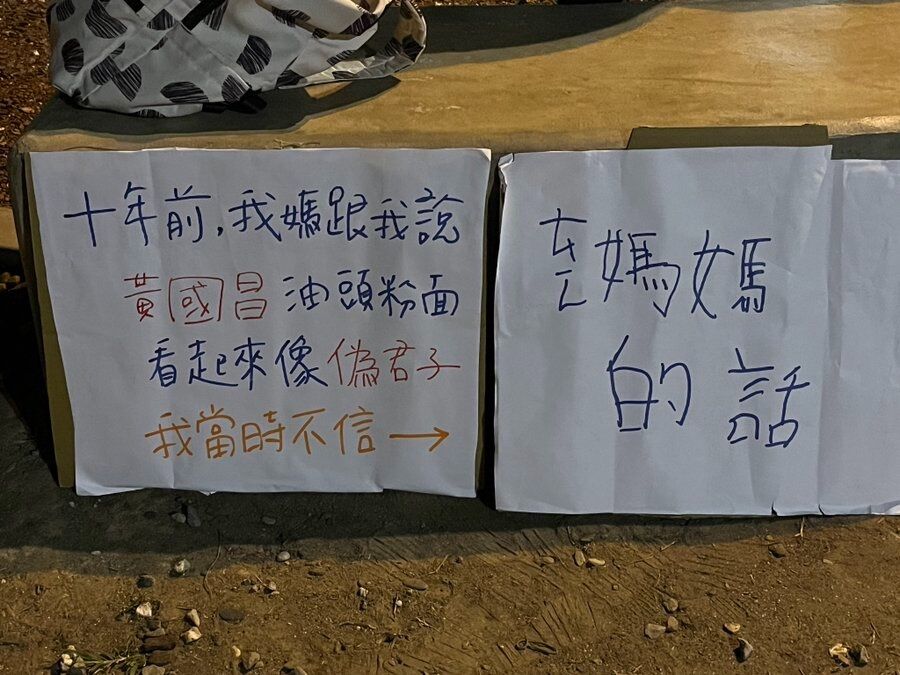 十年前，我媽跟我說
黃國昌油頭粉面
看起來像偽君子
我當時不信→
ㄊㄧㄥ媽媽
的話